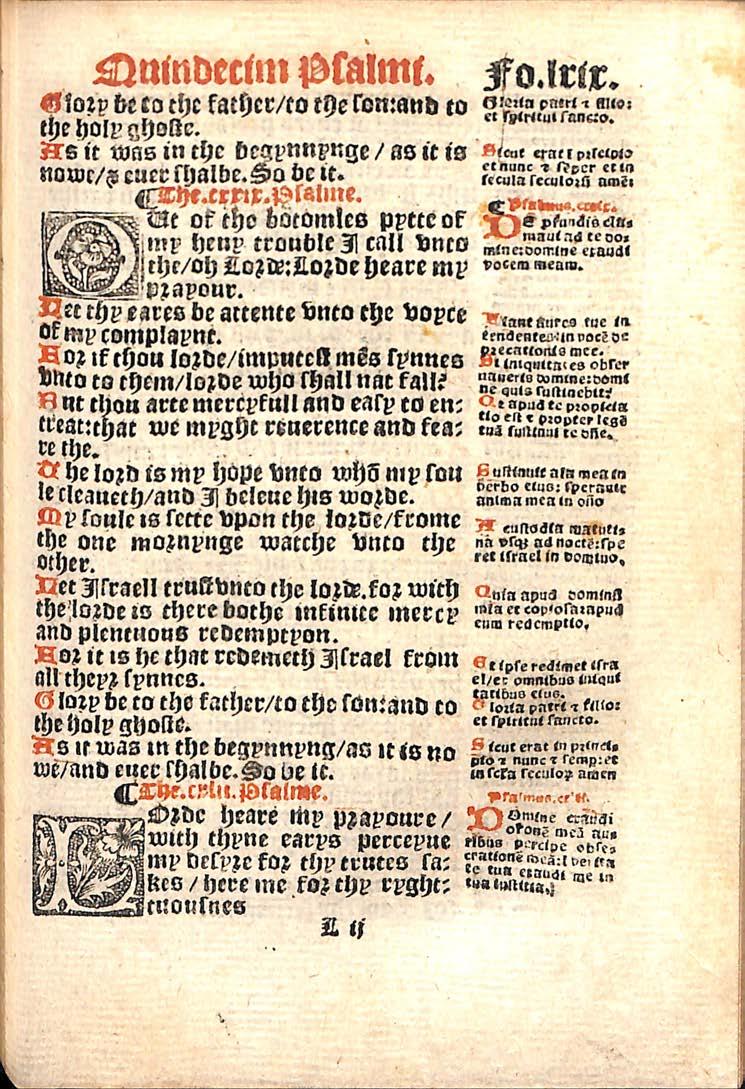 Quindecim Psalmi.
Glory be to the father/to the son:and to
the holy ghoste.
As it was in the begynnynge / as it is
nowe/& euer shalbe. So be it.
¶The.cxxix.Psalme.
OUt of the botomles pytte of
my heuy trouble I call vnto
the/oh Lorde:Lorde heare my
prayour.
Let thy eares be attente vnto the voyce
of my complaynt.
For if thou lorde/imputest mēs synnes
vnto to them/lorde who shall nat fall?
But thou arte mercyfull and easy to en:
treat:that we myght reuerence and fea:
re the.
The lord is my hope vnto whō my sou
le cleaueth/and I beleue his worde.
My soule is sette vpon the lorde/frome
the one mornynge watche vnto the
other.
Let Israell trust vnto the lorde.for with
the lorde is there bothe infinite mercy
and plentuous redemptyon.
For it is he that redemeth Israel from
all theyr synnes.
Glory be to the father/to the son:and to
the holy ghoste.
As it was in the begynnyng/as it is no
we/and euer shalbe. So be it.
¶The.cxlii.Psalme.
LOrde heare my prayoure /
with thyne earys perceyue
my desyre for thy trutes sa:
kes / here me for thy ryght:
tuousnes
L ij
Fo.lxix.
Gloria patri ⁊ filio:
et spiritui sancto.
Sicut erat ī prīcipio
et nunc ⁊ sēper et in
secula seculorū amē:
¶Psalmus.cxxix.
DE pfundis cla
maui ad te do:
mine:domine exaudi
vocem meam.
Fiant aures tue in
tendentes:in vocē de
precationis mee.
Si iniquitates obser
uaueris domine:domi
ne quis sustinebit?
Qr apud te propicia
tio est ⁊ propter legē
tuā sustinui te dñe.
Sustinuit aīa mea in
verbo eius: sperauit
anima mea in dño
A custodia matuti:
na vsq; ad noctē:spe
ret israel in domino,
Quia apud dominū
mīa et copiosa:apud
eum redemptio,
Et ipse redimet isra
el/ex omnibus iniqui
tatibus eius.
Gloria patri ⁊ filio:
et spiritui sancto.
Sicut erat in princi:
pio ⁊ nunc ⁊ semp:et
in secla seculoꝝ amen
Psalmus.cxlii.
DOmine exaudi
orōnē meā aur
ribus percipe obse:
crationē meā:ī verita
te tua exaudi me in
tua iusticia,